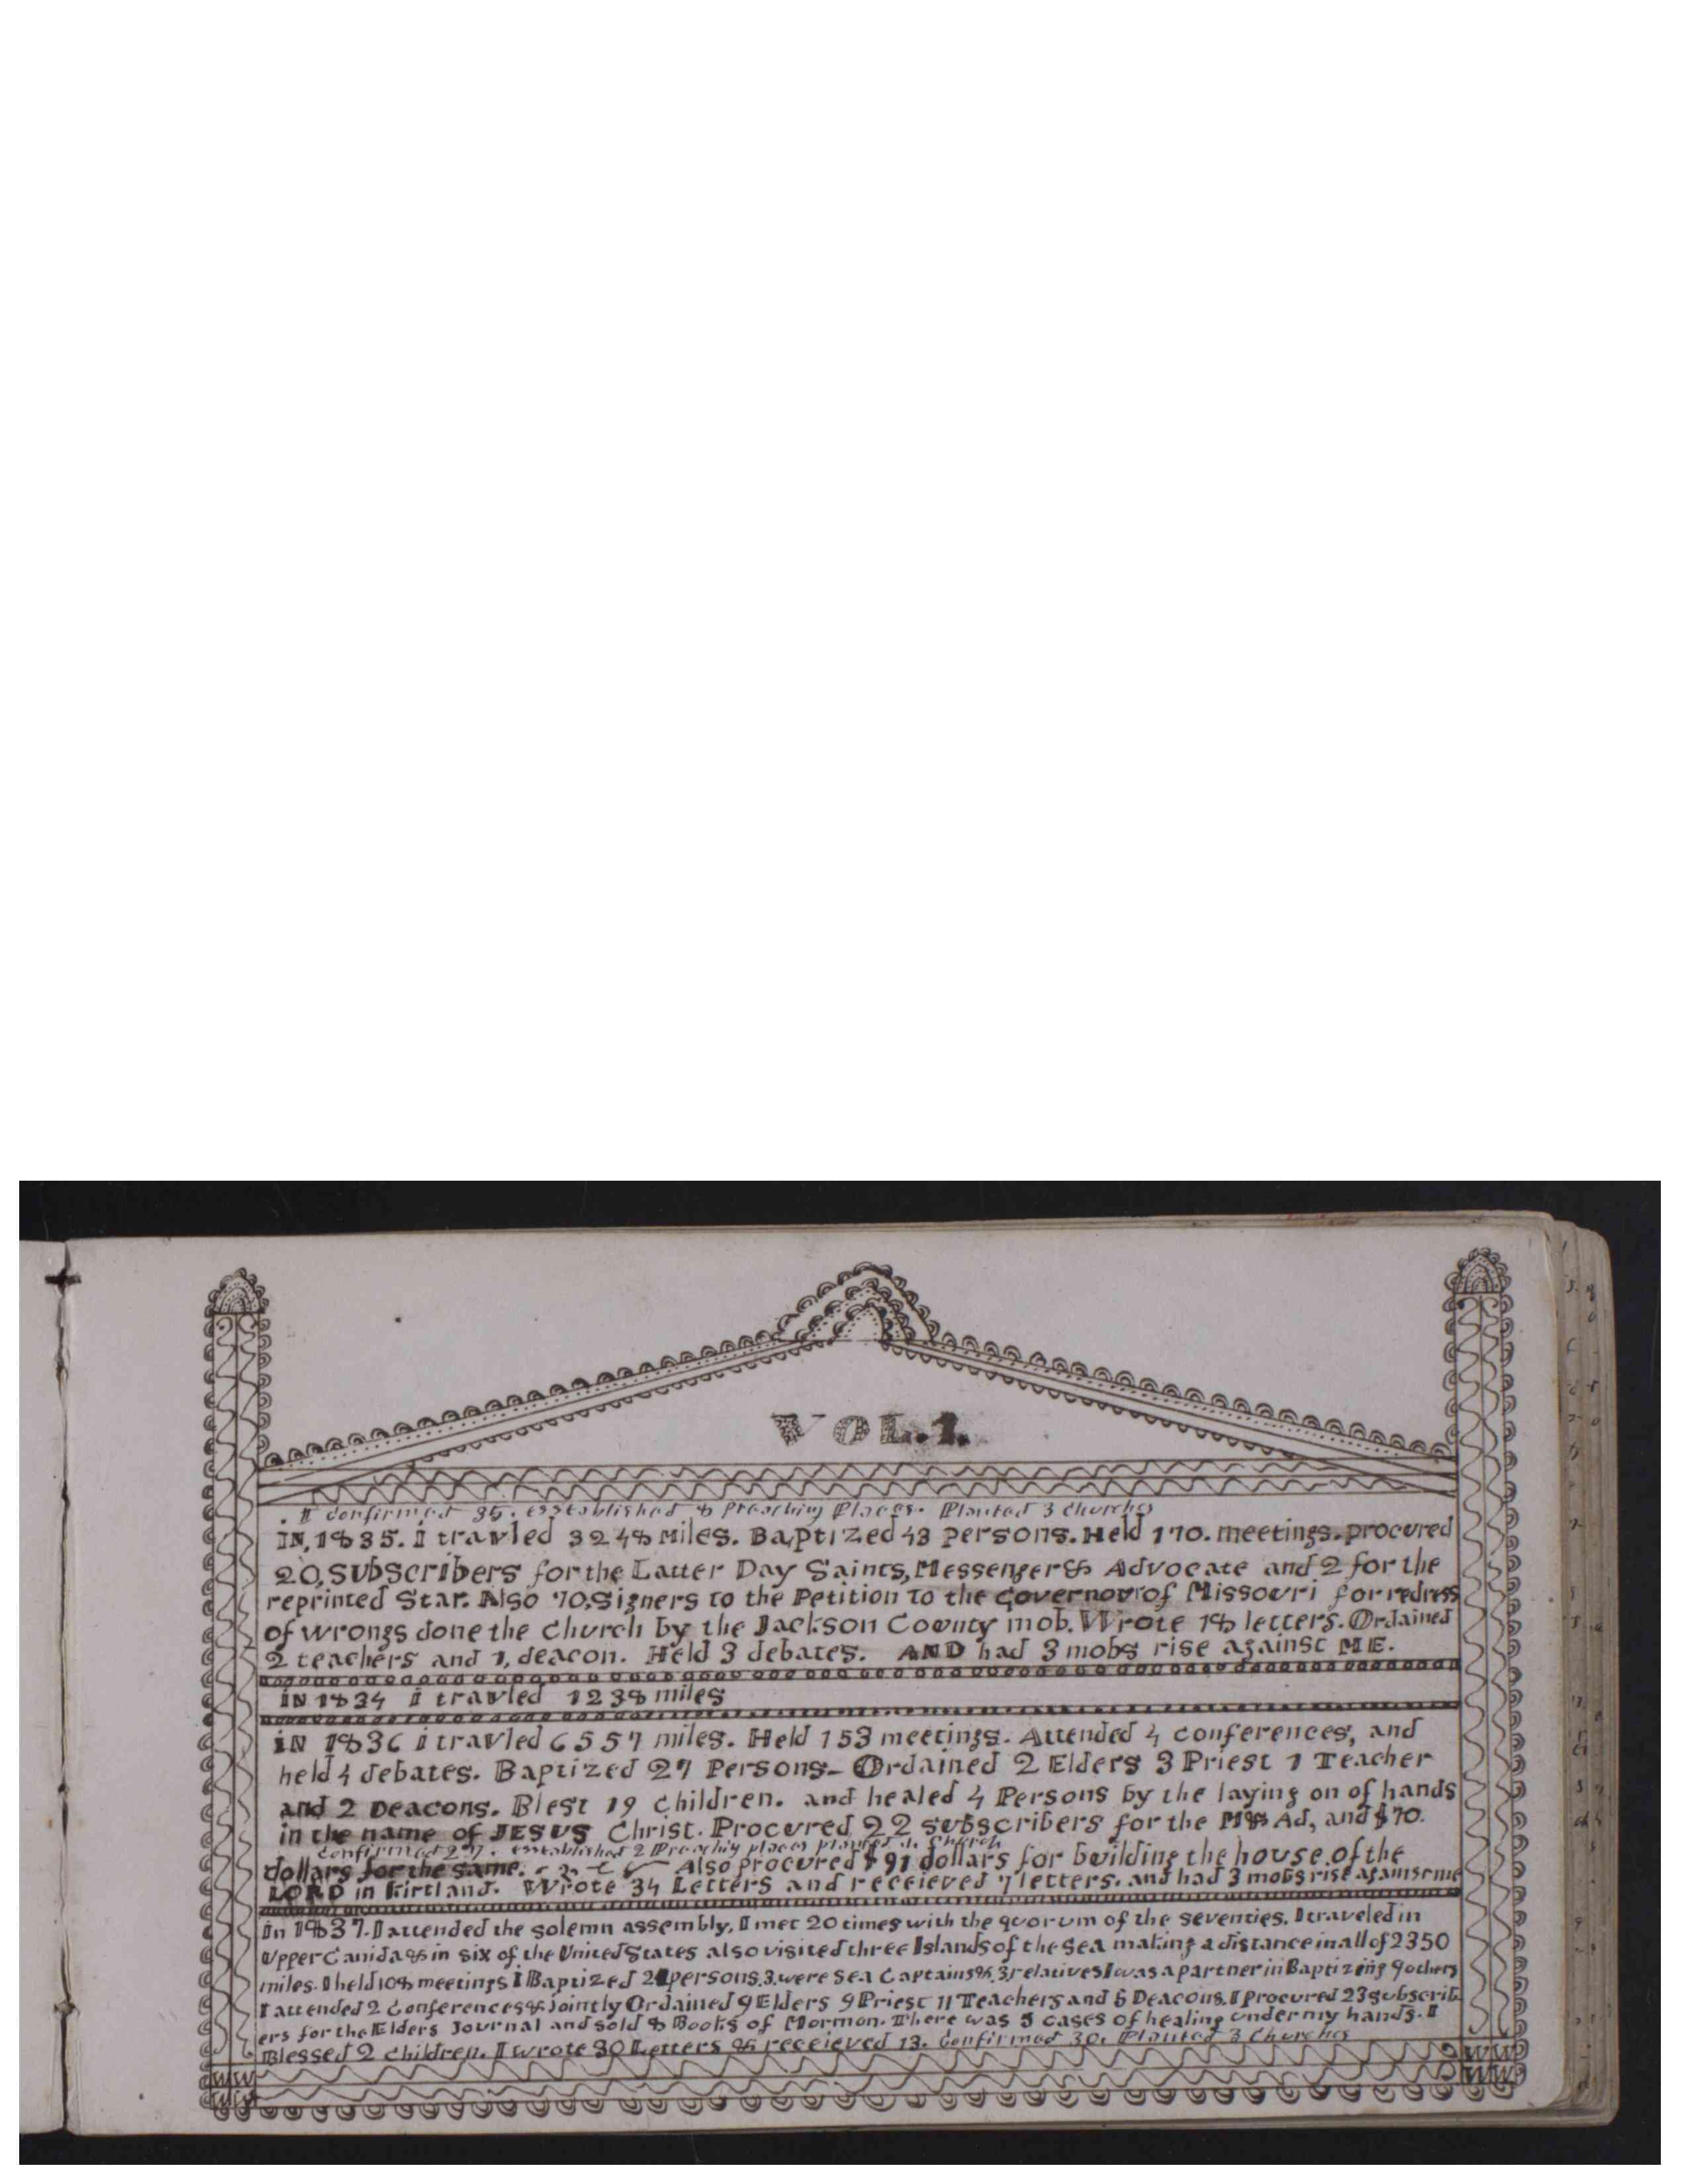 VOL.1.
I confirmed 35. esstablished 8 Preaching Places. Planted 3 Churches
IN, 1835. i travled 3248 Miles. Baptized 43 Persons. Held 170. meetings. procured
20, subscribers for the Latter Day Saints, Messenger & Advocate and 2 for the
reprinted Star. Also 70, Signers to the Petition To the Governour of Missouri for redress
of wrongs done the Church by the Jackson County mob. Wrote 18 letters. Ordained
2 teachers and 1, deacon. Held 3 debates. AND had 3 mobs rise against ME.
iN 1834 i travled 1238 miles
iN 1836 i travled 6557 miles. Held 153 meetings. Attended 4 conferences, and
held 4 debates. Baptized 27 Persons- Ordained 2 Elders 3 Priest 1 Teacher
and 2 Deacons. Blest 19 Children. and healed 4 Persons by the laying on of hands
in the name of JESUS Christ. Procured 22 subscribers for the M& Ad, and $70.
Confirmed 27. esstablished 2 Preachig places planted 1. Church
dollars for the same. Also procured $91 dollars for building the house of the
LORD in Kirtland. Wrote 34 Letters and receieved 7 letters. and had 3 mobs rise against me
In 1837. I attended the solemn assembly, I met 20 times with the quorum of the seventies. I traveled in
Upper Canida & in six of the United States also visited three Islands of the Sea making a distance in all of 2350
miles. I held 108 meetings I Baptized persons. 3. were Sea Captains & 3, relatives I was a partner in Baptizing 9 others
I attended 2 Conferences & Jointly Ordained 9 Elders 9 Priest 11 Teachers and 6 Deacons. I procured 23 subscrib
ers for the Elders Journal and sold 8 Books of Mormon. There was 5 cases of healing under my hands. I
Blessed 2 children. I wrote 30 Letters & receieved 13. Confirmed 30. Planted 3 Churches